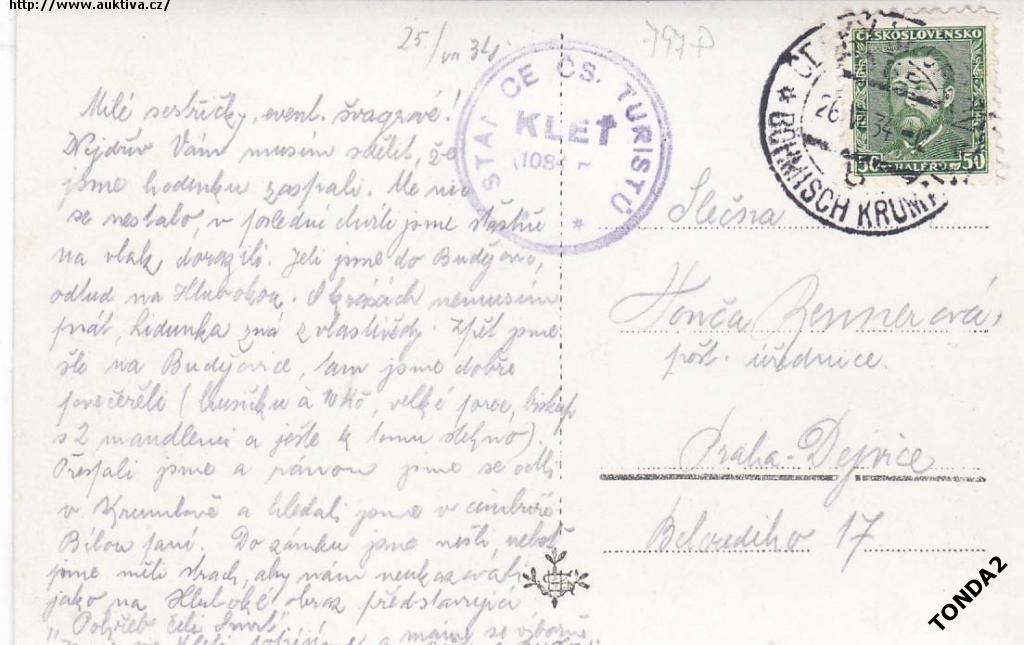 http://www.auktiva.cz/
25/VII 34
797-P
Milé sestřičky, event. švagrové!
Nejdřív Vám musím sdělit, že
jsme hodinku zaspali. Ale nic
se nestalo, v poslední chvíli jsme šťastně
na vlak dorazili. Jeli jsme do Budějovic,
odtud na Hlubokou. O krásách nemusím
psát, Lidunka zná z vlastivědy. Zpět jsme
šli na Budějovice, tam jsme dobře
povečeřeli (husičku à 10 Kč, velké porce, biskup
s 2 mandlemi a ještě k tomu stehno).
Přespali jsme a ráno jsme se octli
v Krumlově a hledali jsme v cimbuří
Bílou paní. Do zámku jsme nešli, neboť
jsme měli strach, aby nám neukazovali
jako na Hluboké obraz představující
"Pohřeb čili Smrt".
a máme se výborně
STANICE ČS. TURISTŮ
KLEŤ
(1084 m
*
ČESKOSLOVENSKO
50 HALÉŘŮ 50
ČESKÝ
26. 34
* BÖHMISCH KRUMAU
Slečna
Honča Rennerová,
pošt. úřednice.
Praha-Dejvice
Belcrediho 17
TONDA2